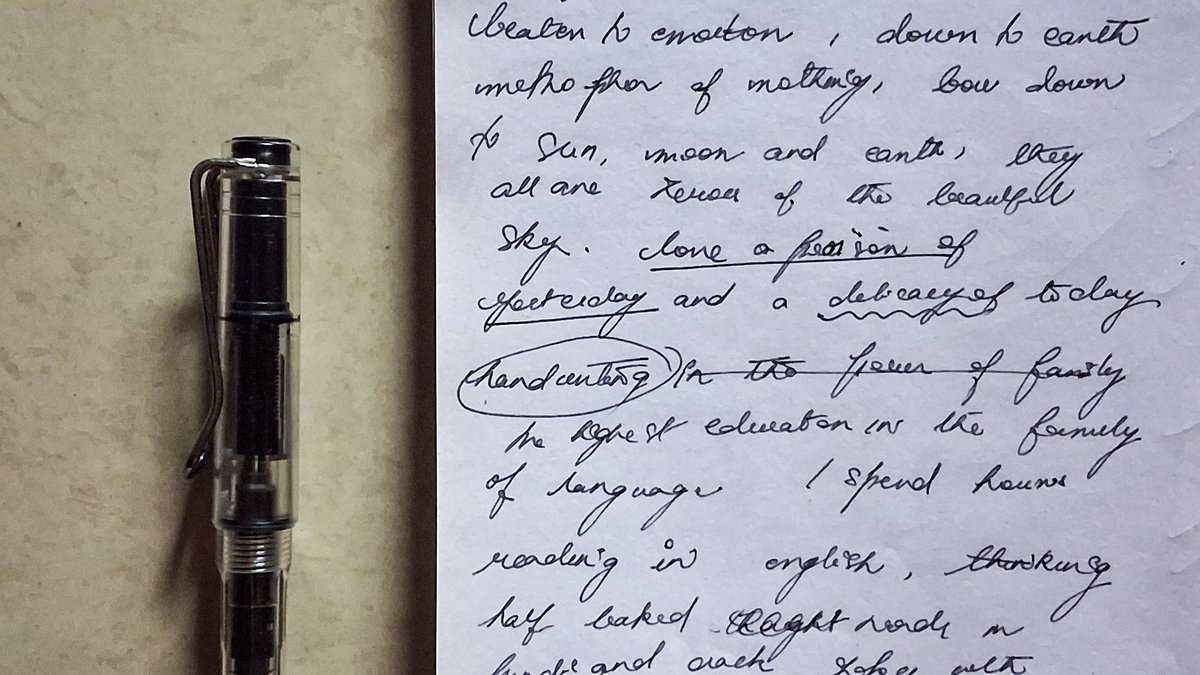 beaten to emotion, down to earth
metaphor of nothing, bow down
to sun, moon and earth, they
all are of the beautiful
sky. love a prison of
yesterday and a delicacy of today
handwriting In the power of family
the highest education in the family
of language I spend hours
reading in english, thinking
half baked thought words in
and crack jokes with